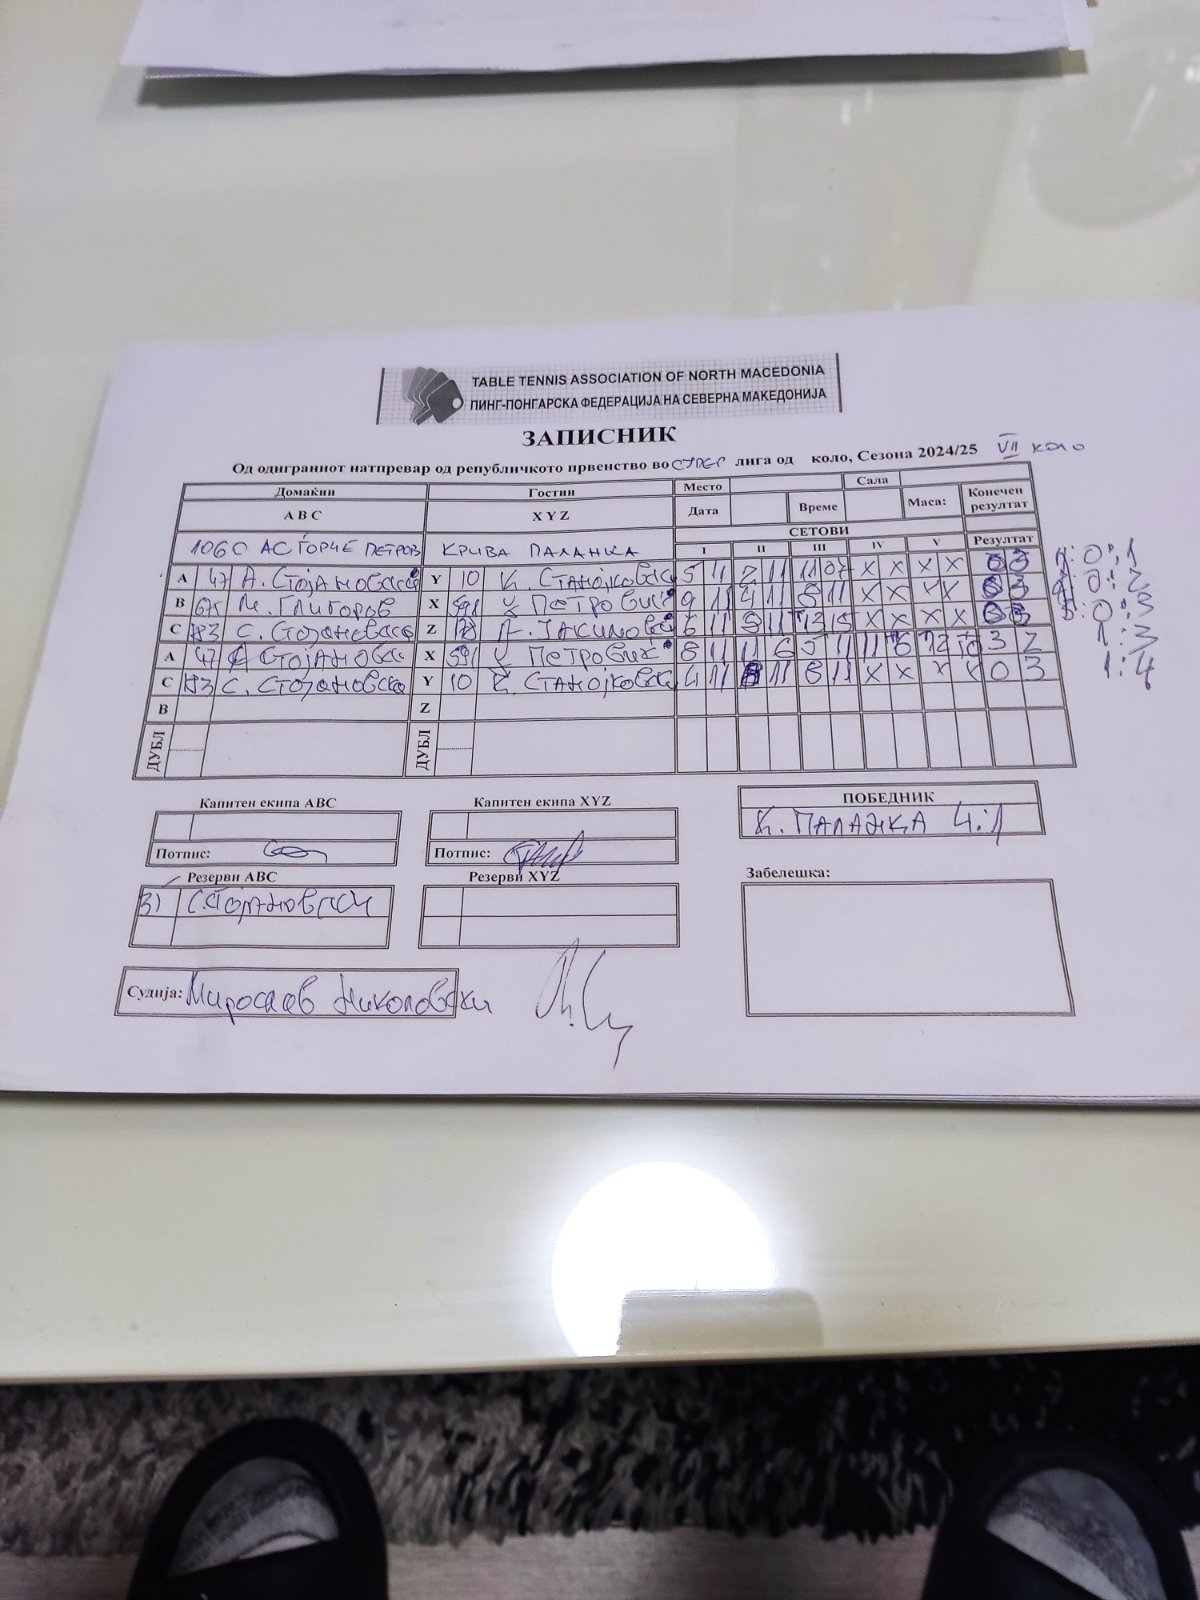 TABLE TENNIS ASSOCIATION OF NORTH MACEDONIA
ПИНГ-ПОНГАРСКА ФЕДЕРАЦИЈА НА СЕВЕРНА МАКЕДОНИЈА
ЗАПИСНИК
Од одиграниот натпревар од републичкото првенство во СУПЕР лига од коло, Сезона 2024/25 VII коло
Домаќин Гостин Место Сала
А В С X Y Z Дата Време Маса: Конечен резултат
СЕТОВИ
1060 АС ЃОРЧЕ ПЕТРОВ КРИВА ПАЛАНКА I II III IV V Резултат
A 47 А. Стојановска Y 10 К. Станојковска 5 11 2 11 X X X X 0 3 0:1
B М. Глигоров X 591 Петровиќ 9 11 4 11 8 11 X X X X 0 3 0:2
C 183 С. Стојановска Z Јакимовска 6 11 9 11 13 15 X X X X 0 3 0:3
A 47 Стојановска X 591 Петровиќ 8 11 11 6 5 11 11 6 12 10 3 2 1:3
C 183 С. Стојановска Y 10 К. Станојковска 4 11 8 11 8 11 X X X X 0 3 1:4
B Z
ДУБЛ ДУБЛ
Капитен екипа ABC Капитен екипа XYZ ПОБЕДНИК
К. ПАЛАНКА 4:1
Потпис: Потпис:
Резерви ABC Резерви XYZ Забелешка:
31 С.Стојановски
Судија: Мирослав Николовски